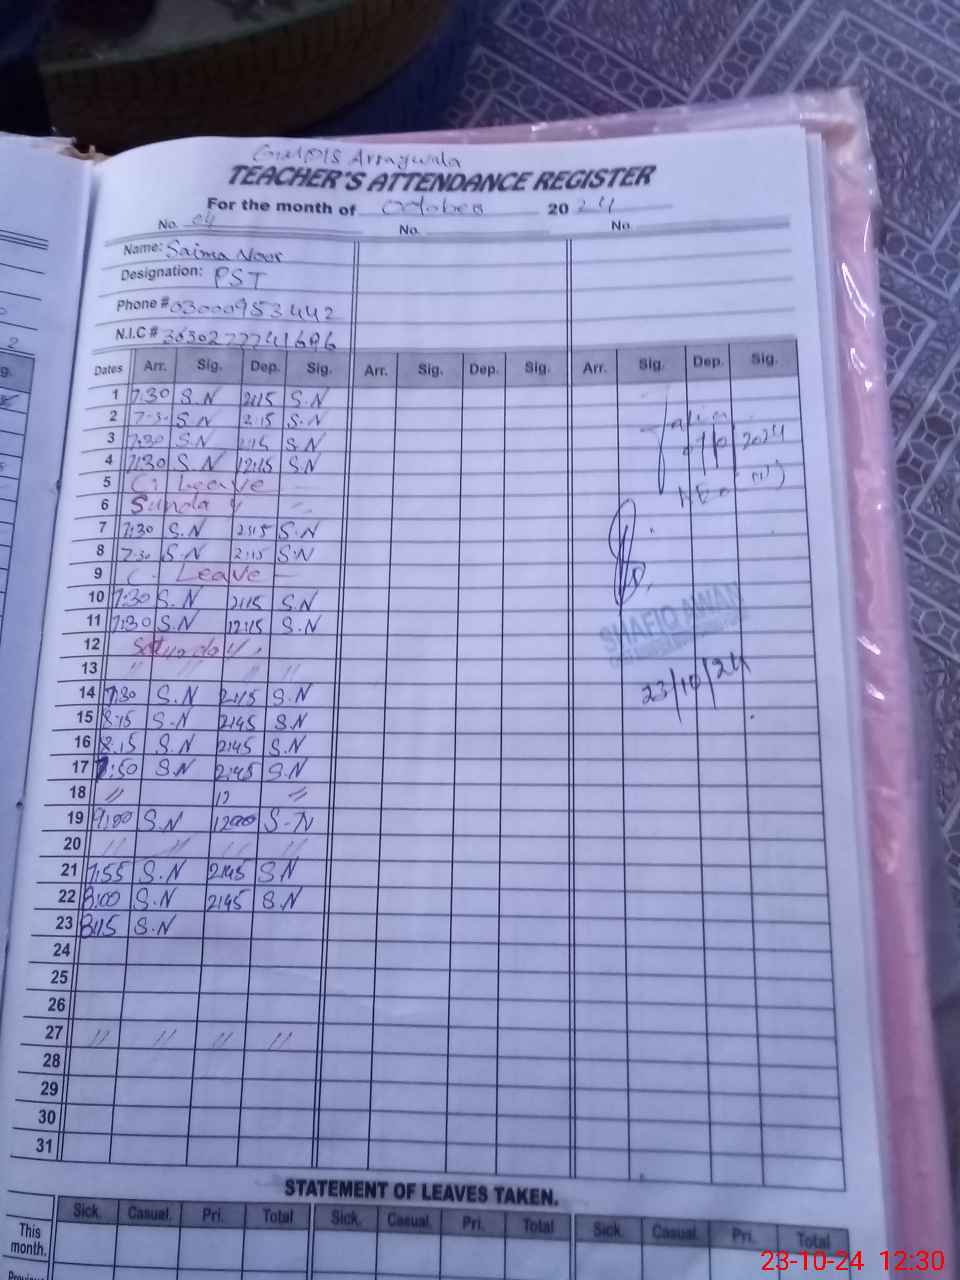 TEACHER'S ATTENDANCE REGISTER
For the month of October 2024
No. 04 No. No.
Name: Saima Noor
Designation: PST
Phone # 03000953442
N.I.C #
Dates Arr. Sig. Dep. Sig. Arr. Sig. Dep. Sig. Arr. Sig. Dep. Sig.
1 7:30 S.N 2:15 S.N
2 7:30 S.N 2:15 S.N
3 7:30 S.N 2:15 S.N
4 7:30 S.N 12:15 S.N
5 C. Leave
6 Sunday
7 7:30 S.N 2:15 S.N
8 7:30 S.N 2:15 S.N
9 C. Leave
10 7:30 S.N 2:15 S.N
11 7:30 S.N 12:15 S.N
12 Saturday
13 " " " "
14 7:30 S.N 2:15 S.N
15 8:15 S.N 2:45 S.N
16 8:15 S.N 2:45 S.N
17 7:50 S.N 2:45 S.N
18 "
19 9:00 S.N 1200 S.N
20 " " " "
21 7:55 S.N 2:45 S.N
22 8:00 S.N 2:45 S.N
23 8:15 S.N
24
25
26
27 " " " "
28
29
30
31
2024
SHAFIQ AWAN
23/10/24
STATEMENT OF LEAVES TAKEN.
Sick. Casual. Pri. Total Sick. Casual. Pri. Total Sick. Casual. Pri. Total
This
month.
23-10-24 12:30